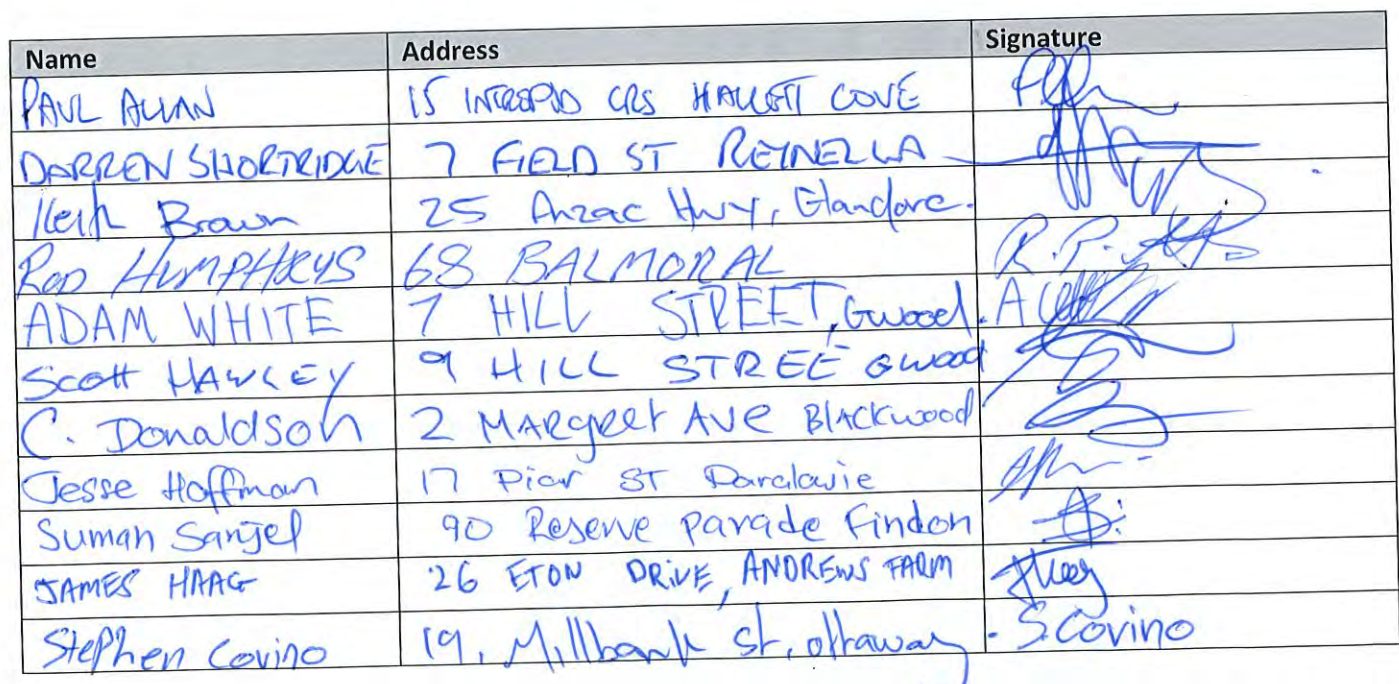 Name Address Signature
PAUL ALLAN 15 INTREPID CRS HALLETT COVE
DARREN SHORTRIDGE 7 FIELD ST REYNELLA
Keith Brown 25 Anzac Hwy, Glandore.
ROD HUMPHRYS 68 BALMORAL R.P.
ADAM WHITE 7 HILL STREET, Gwood.
Scott HAWLEY 9 HILL STREE Gwood
C. Donaldson 2 MARgreet AVe BlAckwood
Jesse Hoffman 17 ST
Suman Sanjel 90 Reserve parade Findon
JAMES HAAG 26 ETON DRIVE, ANDREWS FARM
Stephen Covino 19, Millbank St, ottaway. S.Covino